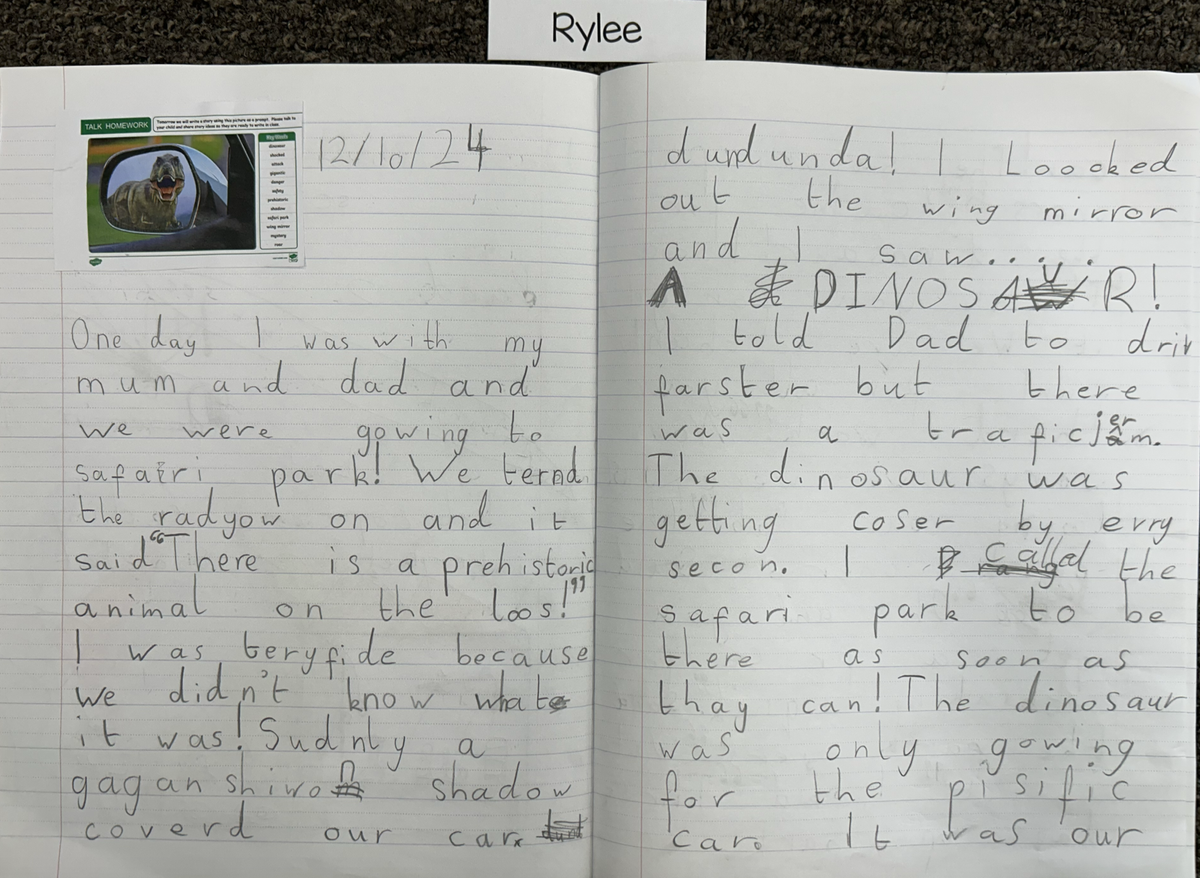 Rylee
TALK HOMEWORK
Tomorrow we will write a story using this picture as a prompt. Please talk to
your child and share story ideas so they are ready to write in class.
Key Words
dinosaur
shocked
attack
gigantic
danger
safety
prehistoric
shadow
safari park
wing mirror
mystery
roar
12/10/24
One day I was with my
mum and dad and
we were gowing to
safairi park! We ternd
the radyow on and it
said "There is a prehistoric
animal on the loos!"
I was teryfide because
we didn't know what
it was! Sudnly a
gaganshiwon shadow
coverd our car.
dundunda! I Loocked
out the wing mirror
and I saw.....
A DINOSAUR!
I told Dad to driv
farster but there
was a trafic jerm.
The dinosaur was
getting coser by evry
secon. I called the
safari park to be
there as soon as
thay can! The dinosaur
was only gowing
for the pisific
car. It was our